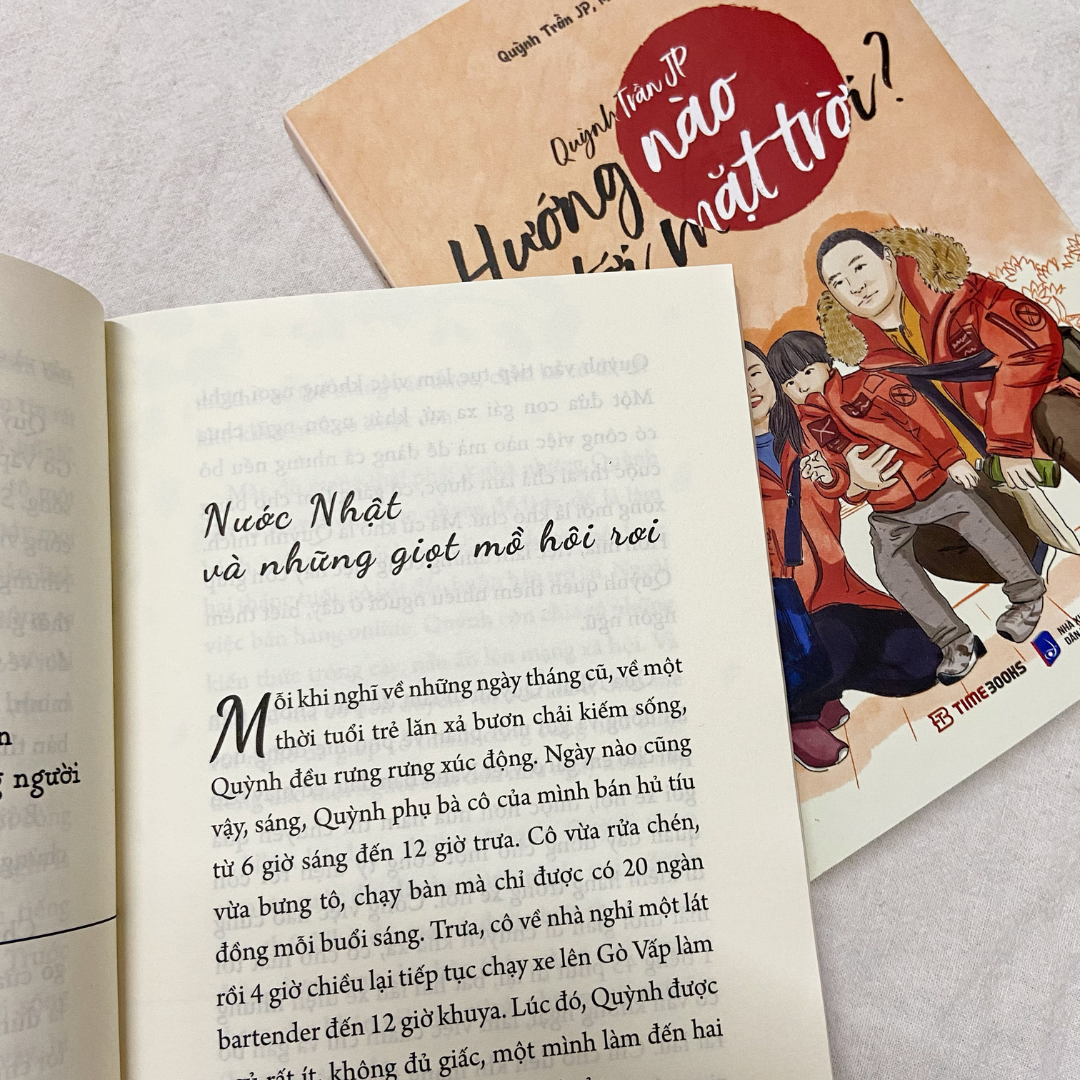 Quỳnh Trần JP,
Quỳnh Trần JP
Hướng nào
mặt trời?
TIMEBOOKS
người
Nước Nhật
và những giọt mồ hôi rơi
Mỗi khi nghĩ về những ngày tháng cũ, về một
thời tuổi trẻ lăn xả bươn chải kiếm sống,
Quỳnh đều rưng rưng xúc động. Ngày nào cũng
vậy, sáng, Quỳnh phụ bà cô của mình bán hủ tíu
từ 6 giờ sáng đến 12 giờ trưa. Cô vừa rửa chén,
vừa bưng tô, chạy bàn mà chỉ được có 20 ngàn
đồng mỗi buổi sáng. Trưa, cô về nhà nghỉ một lát
rồi 4 giờ chiều lại tiếp tục chạy xe lên Gò Vấp làm
bartender đến 12 giờ khuya. Lúc đó, Quỳnh được
rất ít, không đủ giấc, một mình làm đến hai